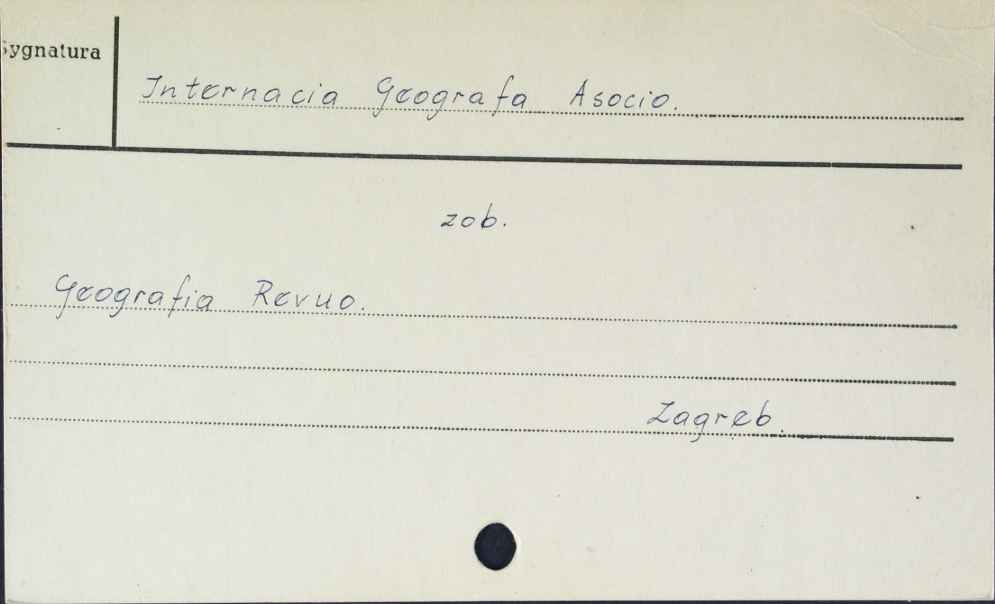 Sygnatura
Internacia Geografa Asocio.
zob.
Geografia Revuo.
Zagreb.